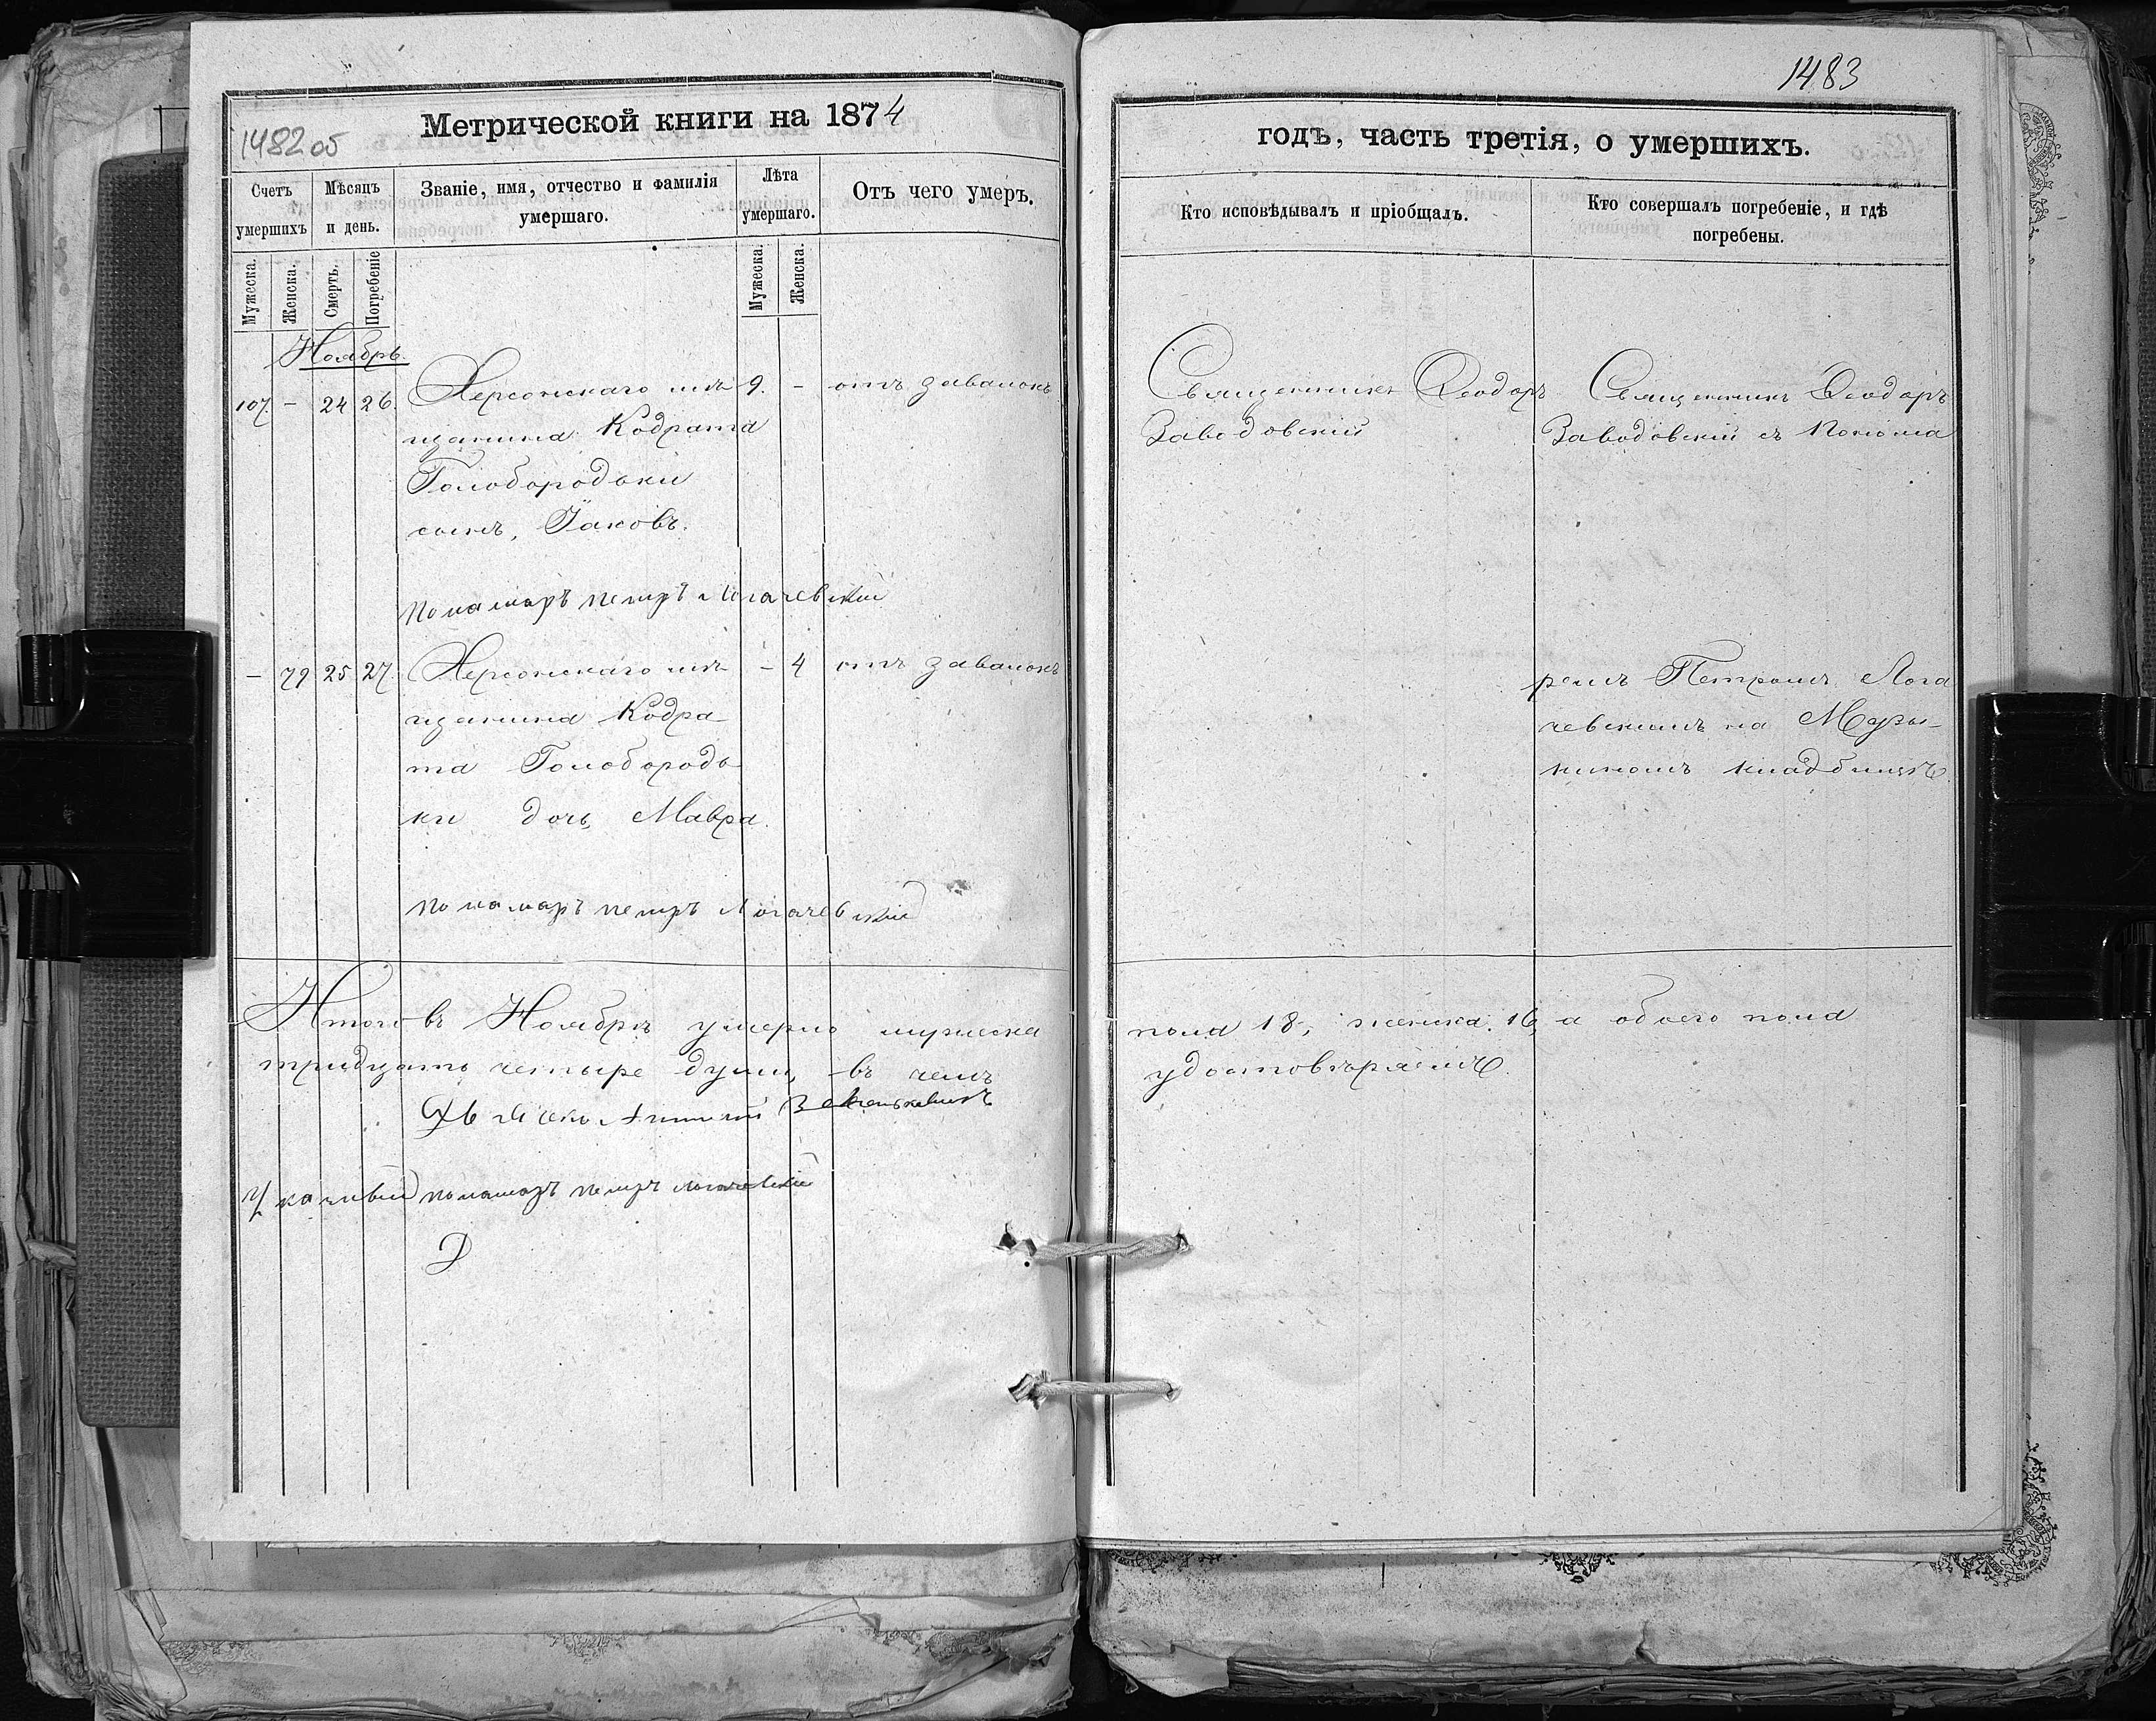 1482об
Метрической книги на 1874
Счетъ умершихъ
Мѣсяцъ и день.
Званіе, имя, отчество и фамилія умершаго.
Лѣта умершаго.
Отъ чего умеръ.
Мужеска.
Женска.
Смерть.
Погребеніе
Мужеска.
Женска.
Ноябрь.
107. – 24 26. Херсонскаго мѣ- 9. – отъ завалокъ
щанина Кодрата
Голобородьки
сынъ, Іаковъ.
Пономаръ петръ Логачевскій
– 79 25 27. Херсонскаго мѣ- – 4 отъ завалокъ
щанина Кодра-
та Голобородь-
ки дочь Мавра.
Пономаръ петръ Логачевскій
Итого въ Ноябрѣ умерло мужеска
тридцать четыре души, въ чемъ
пономаръ петръ Логачевскій
1483
годъ, часть третія, о умершихъ.
Кто исповѣдывалъ и пріобщалъ.
Кто совершалъ погребеніе, и гдѣ погребены.
Священникъ Ѳеодоръ
Заводовскій
Священникъ Ѳеодоръ
Заводовскій съ Понома
ремъ Петромъ Лога
чевскимъ на Музы-
киномъ кладбищѣ.
пола 18, женска. 16, а обоего пола
удостовѣряемъ.